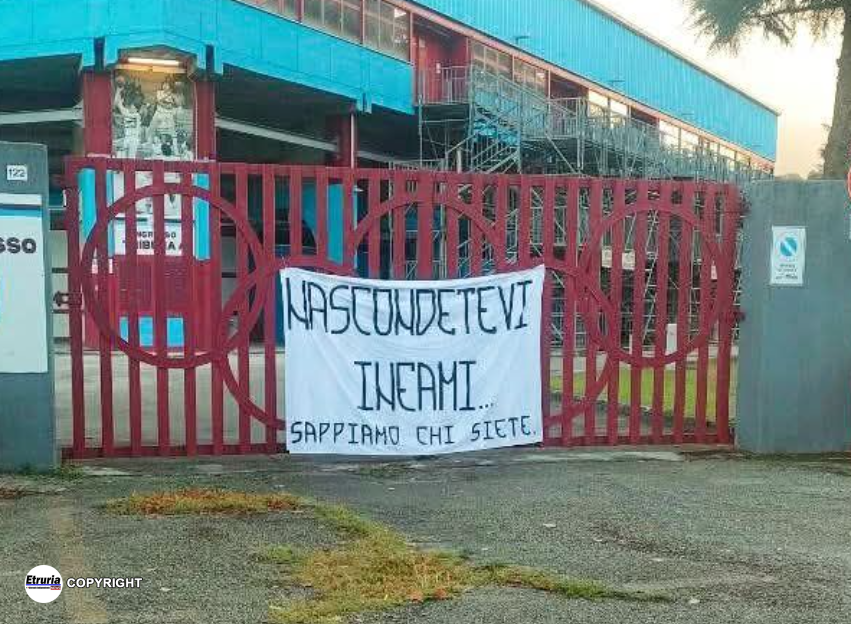 122
SSO
INGRESSO
TRIBUNA A
NASCONDETEVI
INFAMI...
SAPPIAMO CHI SIETE.
Etruria COPYRIGHT